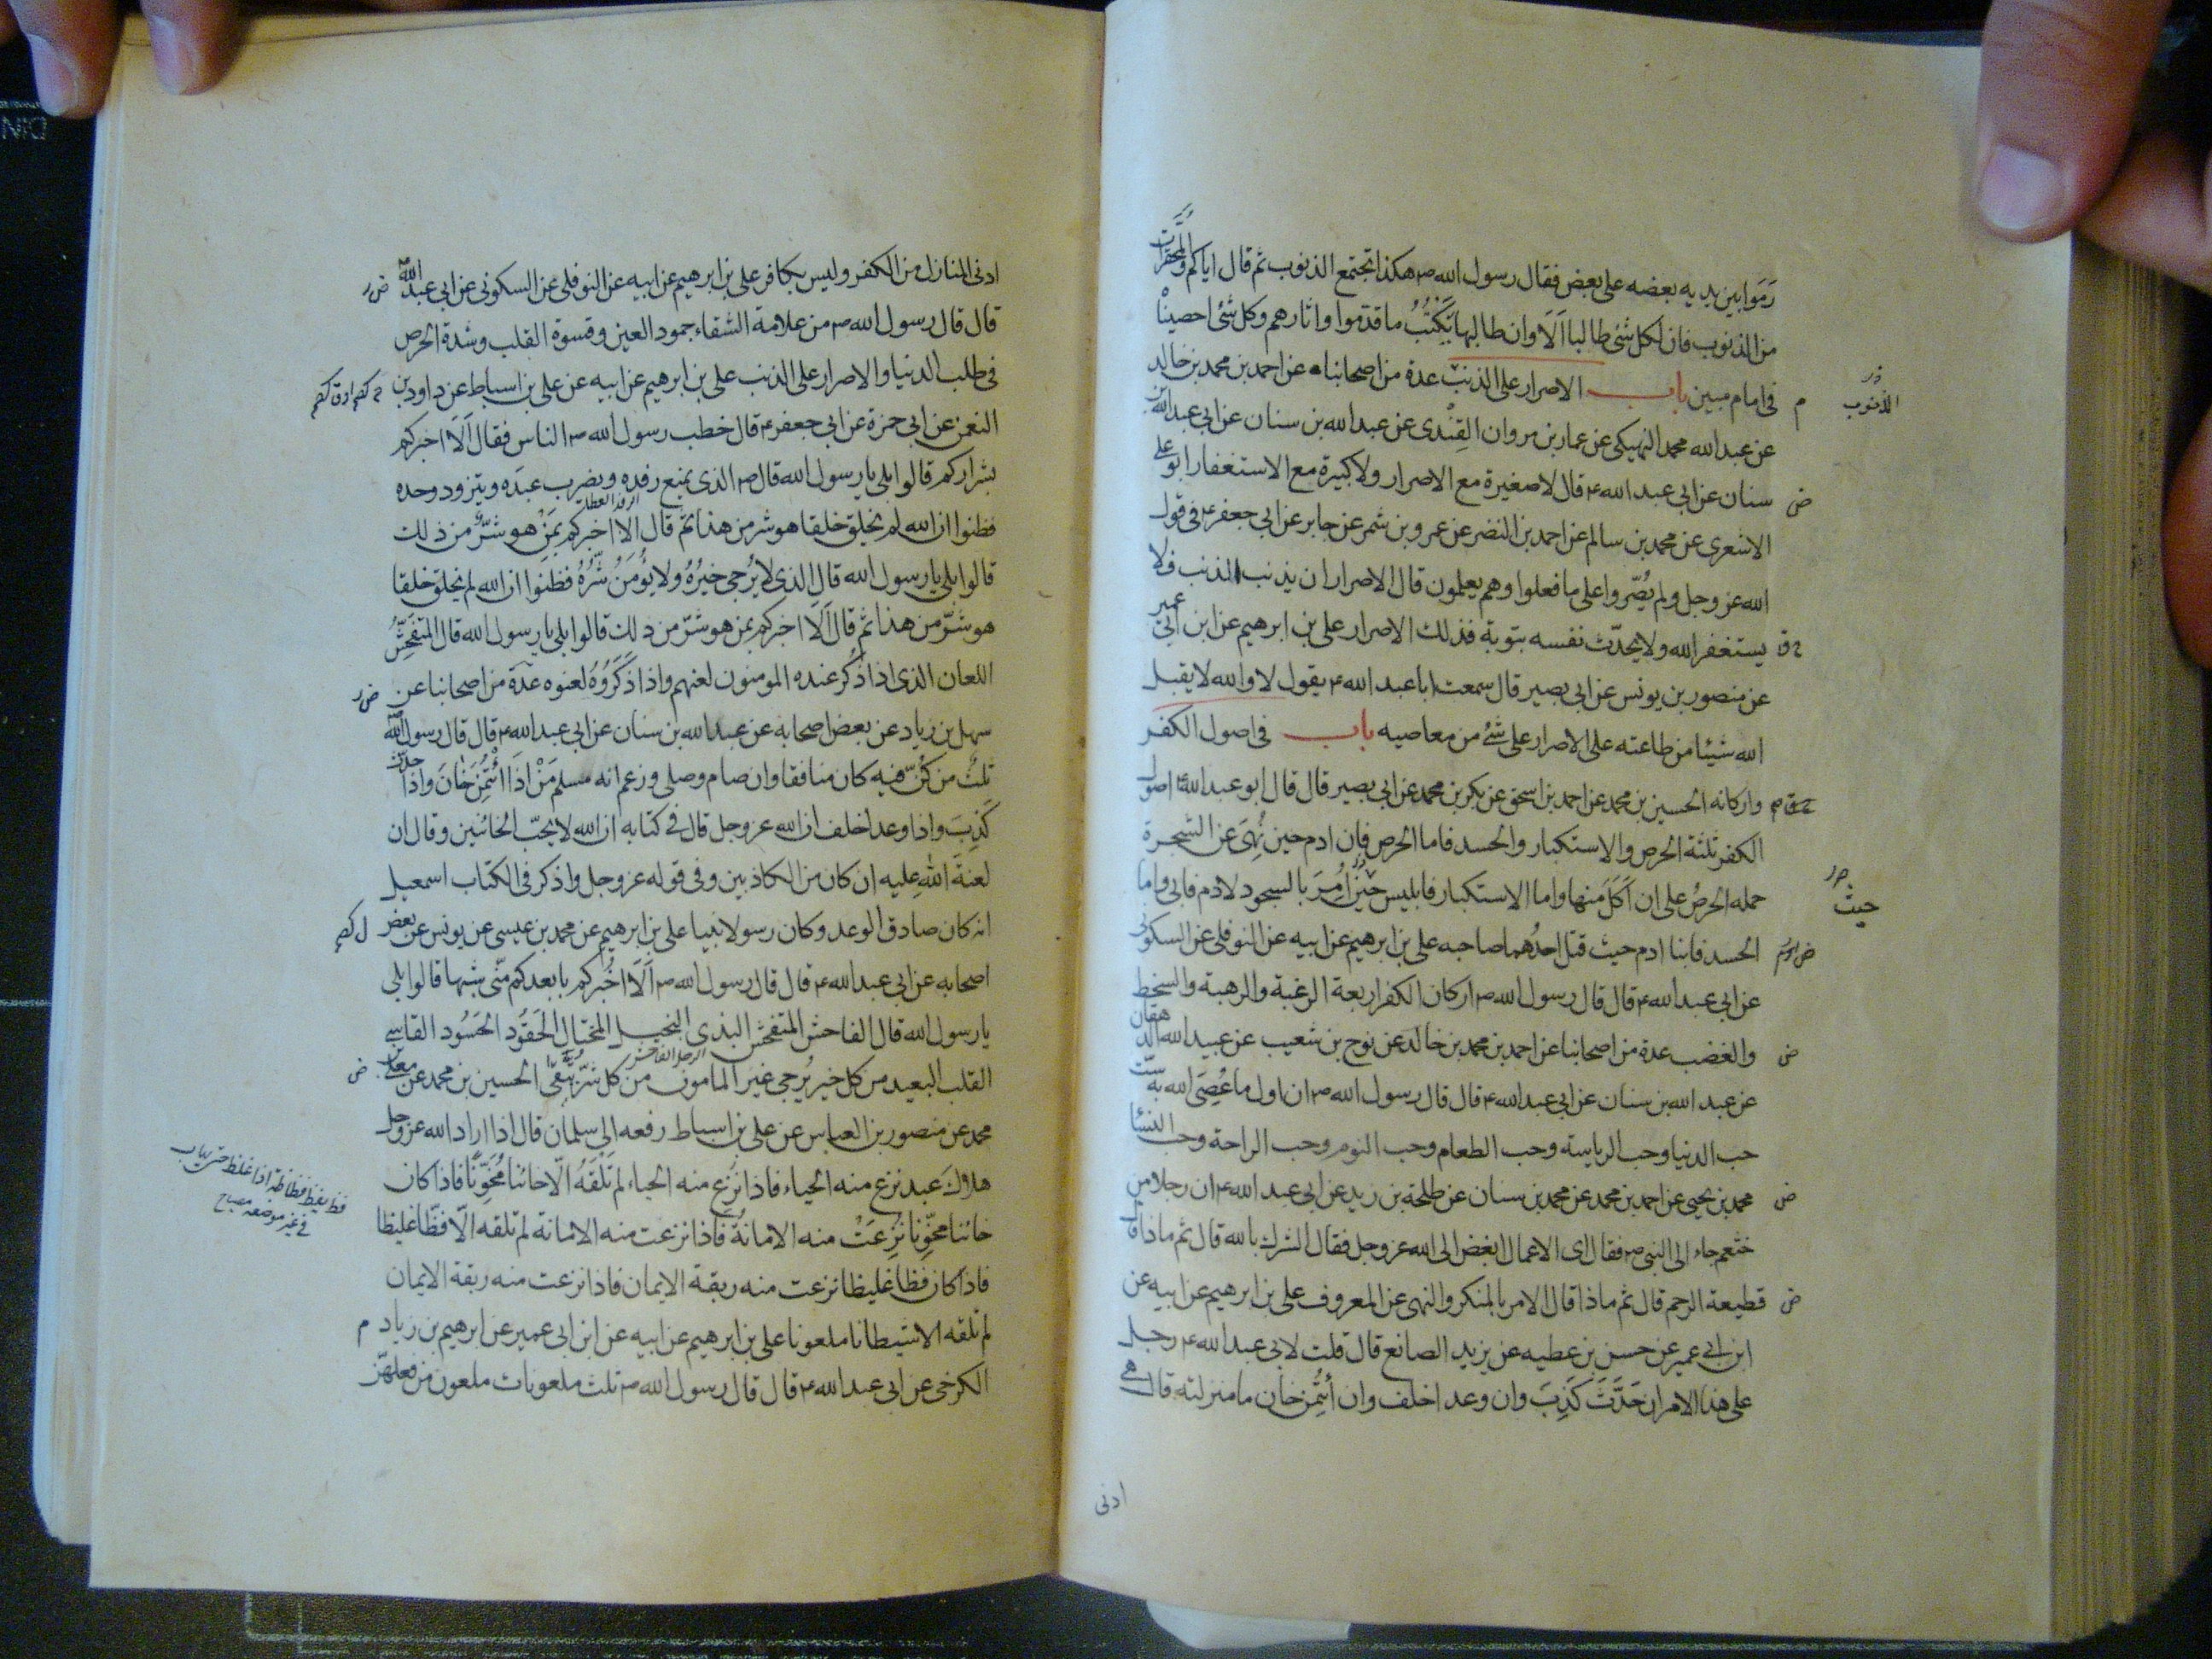 رَمَوا بين يديه بعضه على بعض فقال رسول الله ص هكذا تجتمع الذنوب ثم قال اياكم والمُحَقَّرات
من الذنوب فان لكل شئ طالبا اَلَا وان طالبها يَكْتُبُ ما قدّموا واثارهم وكل شئ احصيناْ
فى امام مبين باب الاصرار على الذنب عدة من اصحابنا عن احمد بن محمد بن خالد
الذنوب
عن عبد الله محمد النهيكى عن عمار بن مروان القِنْدى عن عبد الله بن سنان عن ابى عبد الله بن
سنان عن ابى عبد الله ع قال لا صغيرة مع الاصرار ولا كبيرة مع الاستغفار ابو على
الاشعرى عن محمد بن سالم عن احمد بن النضر عن عمرو بن شمر عن جابر عن ابى جعفر ع فى قول
الله عز وجل ولم يُصّروا على ما فعلوا وهم يعلمون قال الاصرار ان يذنب الذنب فلا
يستغفر الله ولا يحدّث نفسه بتوبة فذلك الاصرار على بن ابرهيم عن ابن ابى عمير
عن منصور بن يونس عن ابى بصير قال سمعت ابا عبد الله ع يقول لا والله لا يقبل
الله شيئا من طاعته على الاصرار على شئ من معاصيه باب فى اصول الكفر
واركانه الحسين بن محمد عن احمد بن اسحق عن بكر بن محمد عن ابى بصير قال قال ابو عبد الله ع اصول
الكفر ثلثة الحرص والاستكبار والحسد فاما الحرص فان ادم حين نُهِىَ عن الشجرة
حمله الحرصُ على ان اَكَلَ منها واما الاستكبار فابليس حين اُمِرَ بالسجود لادم فابى واما
حيث
الحسد فابنا ادم حيث قتل احدُهما صاحبه على بن ابرهيم عن ابيه عن النوفلى عن السكونى
عن ابى عبد الله ع قال قال رسول الله ص اركان الكفر اربعة الرغبة والرهبة والسخط
والغضب عدة من اصحابنا عن احمد بن محمد بن خالد عن نوح بن شعيب عن عبيد الله الدهقان
عن عبد الله بن سنان عن ابى عبد الله ع قال قال رسول الله ص ان اول ما عُصِىَ الله به ستّ
حب الدنيا وحب الرياسة وحب الطعام وحب النوم وحب الراحة وحب النساء
محمد بن يحيى عن احمد بن محمد عن محمد بن سنان عن طلحة بن زيد عن ابى عبد الله ع ان رجلا من
خثعم جاء الى النبى ص فقال اى الاعمال ابغض الى الله عز وجل فقال الشرك بالله قال ثم ماذا قال
قطيعة الرحم قال ثم ماذا قال الامر بالمنكر والنهى عن المعروف على بن ابرهيم عن ابيه عن
ابن ابى عمير عن حسن بن عطيه عن يزيد الصانع قال قلت لابى عبد الله ع رجل
على هذا الامر ان حَدَّثَ كَذِبَ وان وعد اخلف وان اُئتُمِن خان ما منزلته قال هى
ادنى
ادنى المنازل من الكفر وليس بكافر على بن ابرهيم عن ابيه عن النوفلى عن السكونى عن ابى عبد الله ع
قال قال رسول الله ص من علامة الشقاء جمود العين وقسوة القلب وشدة الحرص
فى طلب الدنيا والاصرار على الذنب على بن ابرهيم عن ابيه عن على بن اسباط عن داود بن
النعمن عن ابى حمزة عن ابى جعفر ع قال خطب رسول الله ص الناس فقال اَلَا اخبركم
بشراركم قالوا بلى يا رسول الله قال ص الذى يمنع رفده ويضرب عبدَه ويتزود وحده
الرفد العطاء
فظنوا ان الله لم يخلق خلقا هو شر من هذا ثم قال الا اخبركم بمَنْ هو شرٌّ من ذلك
قالوا بلى يا رسول الله قال الذى لا يُرجى خيرُهُ ولا يُومَنُ شَرُّهُ فظنوا ان الله لم يخلق خلقا
هو شرّ من هذا ثم قال اَلَا اخبركم بمن هو شرّ من ذلك قالوا بلى يا رسول الله قال المتفحِّشُ
اللعان الذى اذا ذُكر عنده المومنون لعنهم واذا ذكَرُوهُ لعنوه عدة من اصحابنا عن
سهل بن زياد عن بعض اصحابه عن عبد الله بن سنان عن ابى عبد الله ع قال قال رسول الله ص
ثلثٌ من كُنّ فيه كان منافقا وان صام وصلى وزعم انه مسلم مَنْ اذا ائْتُمِنَ خانَ واذا حدّث
كَذِبَ واذا وعد اخلف ان الله عز وجل قال فى كتابه ان الله لا يحبّ الخائنين وقال ان
لعنةَ اللهِ عليه ان كان من الكاذبين وفى قوله عز وجل واذكر فى الكتاب اسمعيل
انه كان صادق الوعد وكان رسولا نبيا على بن ابرهيم عن محمد بن عيسى عن يونس عن بعض
اصحابه عن ابى عبد الله ع قال قال رسول الله ص اَلَا اُخْبِرُكم بابعدكم منّى شبها قالوا بلى
يا رسول الله قال الفاحش المتفحّش البذى البخيل المختال الحَقُود الحَسُود القاسى
القلب البعيد من كل خير يُرجى غير المامون من كل شرّ يُتّقى الحسين بن محمد عن معلى بن
محمد عن منصور بن العباس عن على بن اسباط رفعه الى سلمان قال اذا اراد الله عز وجل
هلاك عبد نزع منه الحياء فاذا نزع منه الحياء لم تَلْقَهُ الّا خائنا مُخَوَّنًا فاذا كان
خائنا مخوّنا نُزِعَتْ منه الامانةُ فاذا نزعت منه الامانة لم تلقه الّا فظّا غليظا
فظ يفظ فظاظة اذا غلظ حتى يهاب
فى غير موضعه مصباح
فاذا كان فظا غليظا نزعت منه ربقة الايمان فاذا نزعت منه ربقة الايمان
لم تلقه الا شيطانا ملعونا على بن ابرهيم عن ابيه عن ابن ابى عمير عن ابرهيم بن زياد
الكرخى عن ابى عبد الله ع قال قال رسول الله ص ثلث ملعونات ملعون من فعلهنّ